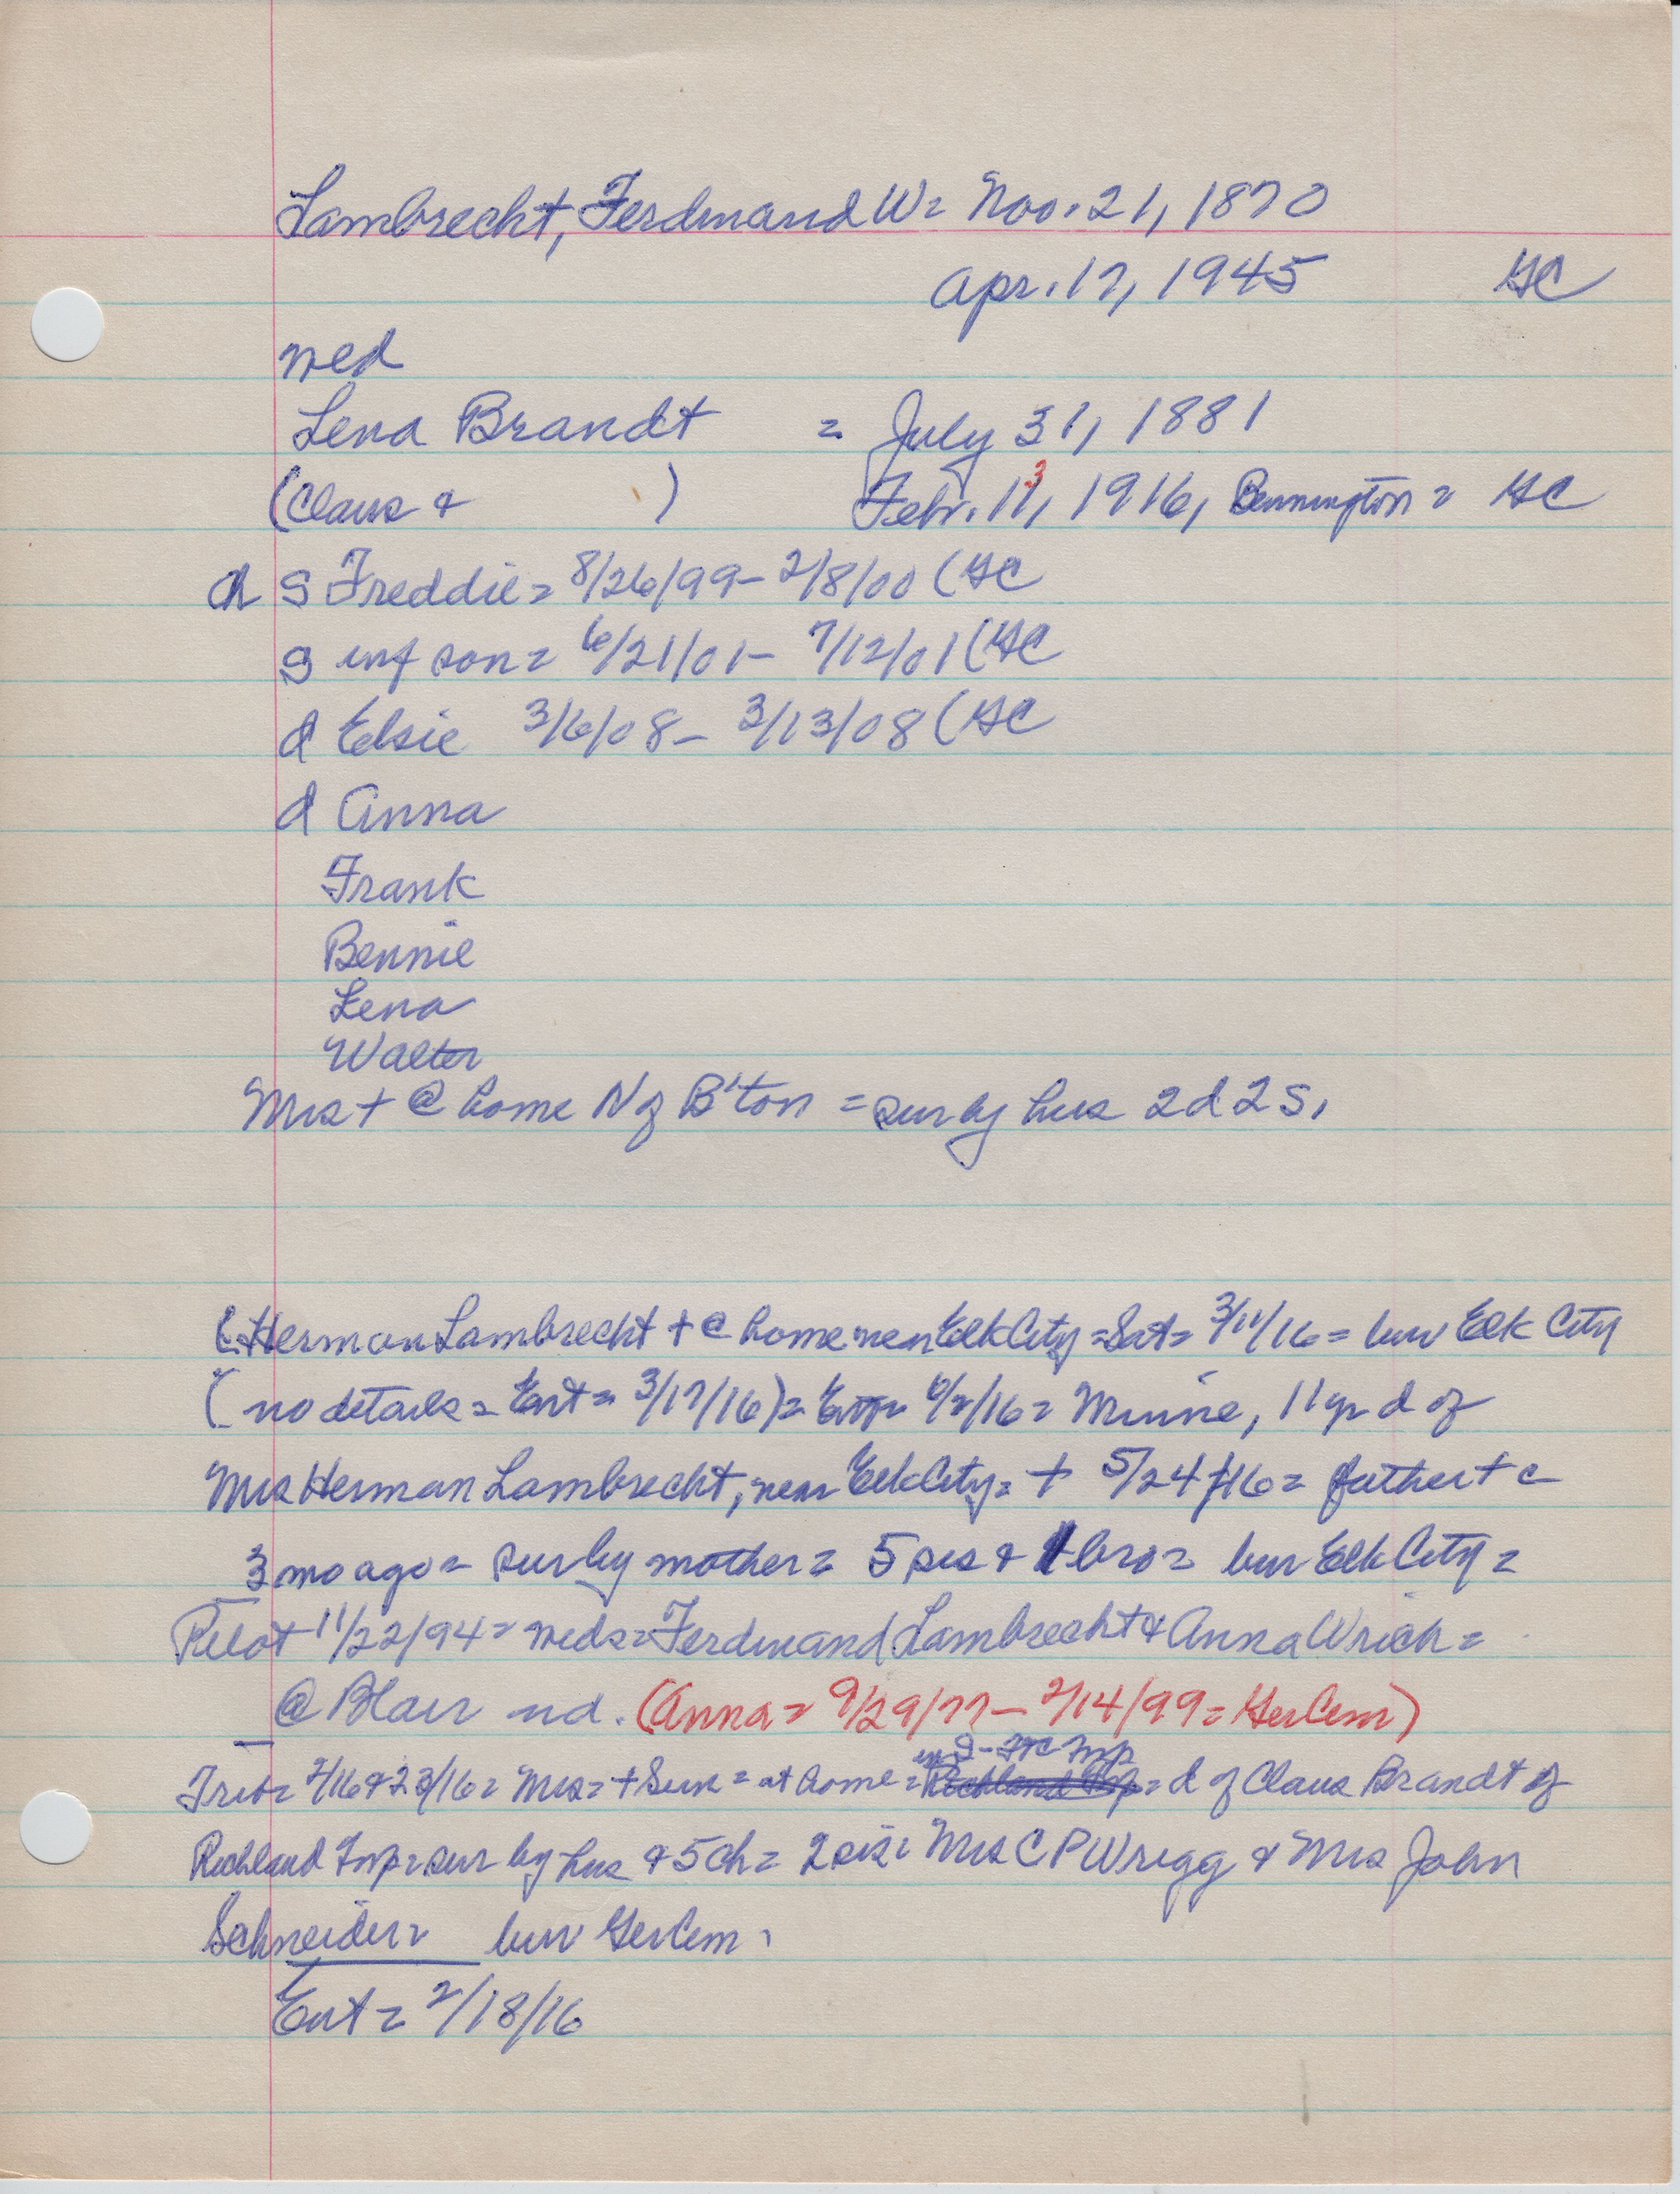 Lambrecht, Ferdinand W= Nov. 21, 1870
Apr. 17, 1945 GC
wed
Lena Brandt = July 31, 1881
(Claus & ) Febr. 11, 3 1916, Bennington = GC
ch S Freddie = 8/26/99 - 2/8/00 (GC
S inf son = 6/21/01 - 7/12/01 (GC
d Elsie 3/6/08 - 3/13/08 (GC
d Anna
Frank
Bennie
Lena
Walter
Mrs + @ home N of B'ton = sur by hus 2d 2S.
Herman Lambrecht + @ home near Elk City = Sat = 3/11/16 = bur Elk City
( no details = Ent = 3/17/16) = 6/2/16 = Minnie, 11 yr d of
Mrs Herman Lambrecht, near Elk City = + 5/24/16 = father + c
3 mo ago = sur by mother = 5 sis & 1 bro = bur Elk City =
Pilot 11/22/94 = weds = Ferdinand Lambrecht & Anna Wrich =
@ Blair nd. (Anna = 9/29/77 - 2/14/99 = Ger Cem)
in Twp
Trib = 2/16 & 23/16 = Mrs = + Sun = at home = Richland Twp = d of Claus Brandt of
Richland Twp = sur by hus & 5 ch = 2 sis = Mrs C P Wrigg & Mrs John
Schneider = bur Ger Cem.
Ent = 2/18/16